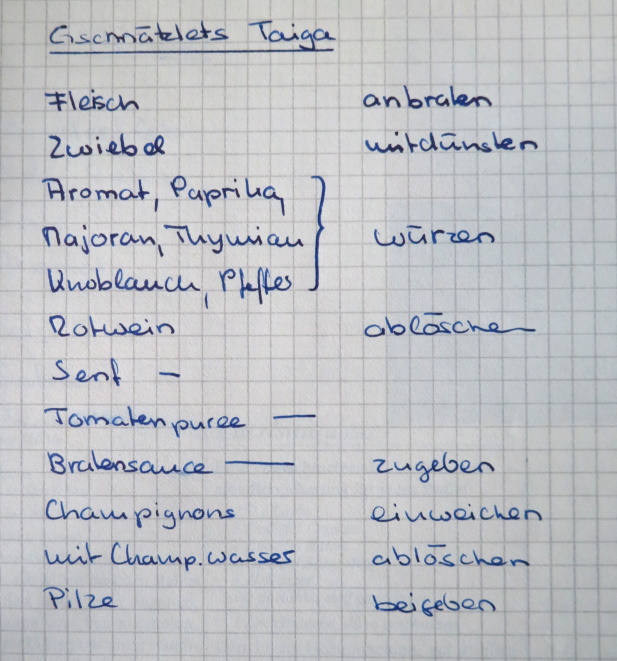 Gschnätzlets Taiga
Fleisch anbraten
Zwiebel mitdünsten
Aromat, Paprika,
Majoran, Thymian würzen
Knoblauch, Pfeffer
Rotwein ablöschen
Senf —
Tomatenpuree —
Bratensauce — zugeben
Champignons einweichen
mit Champ.wasser ablöschen
Pilze beigeben